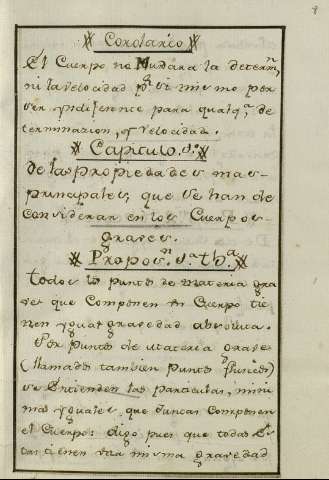 8
Corolario
El Cuerpo no Mudara la determ.n
ni la velocidad p.r si mismo por
ser yndiferente para qualq.a de
terminacion, o velocidad.
Capitulo 3.o
De las Propiedades mas
principales, que se han de
Considerar en los Cuerpos
graves.
Propos.n
todos los puntos de materia gra
ves que Componen un Cuerpo tie
nen ygual gravedad absoluta.
Por puntos de materia grave
(llamados tambien puntos fisicos)
se Entienden las particulas, mini
mas yguales, que juntas Componen
el Cuerpo: digo pues que todas Es
tas tienen una misma gravedad